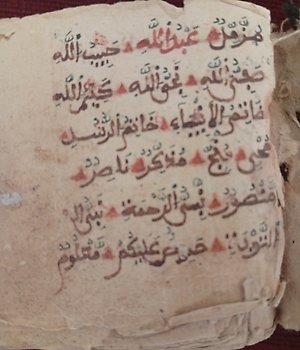 مُزَّمِّلٌ عَبْدُ اللَّهِ حَبِيبُ اللَّهِ
صَفِيُّ اللَّهِ نَجِيُّ اللَّهِ كَلِيمُ اللَّهِ
خَاتِمُ الْأَنْبِيَاءِ خَاتِمُ الرُّسُلِ
مُحْيٍ مُنْجٍ مُذَكِّرٌ نَاصِرٌ
مَنْصُورٌ نَبِيُّ الرَّحْمَةِ نَبِيُّ
التَّوْبَةِ حَرِيصٌ عَلَيْكُمْ مَعْلُومٌ